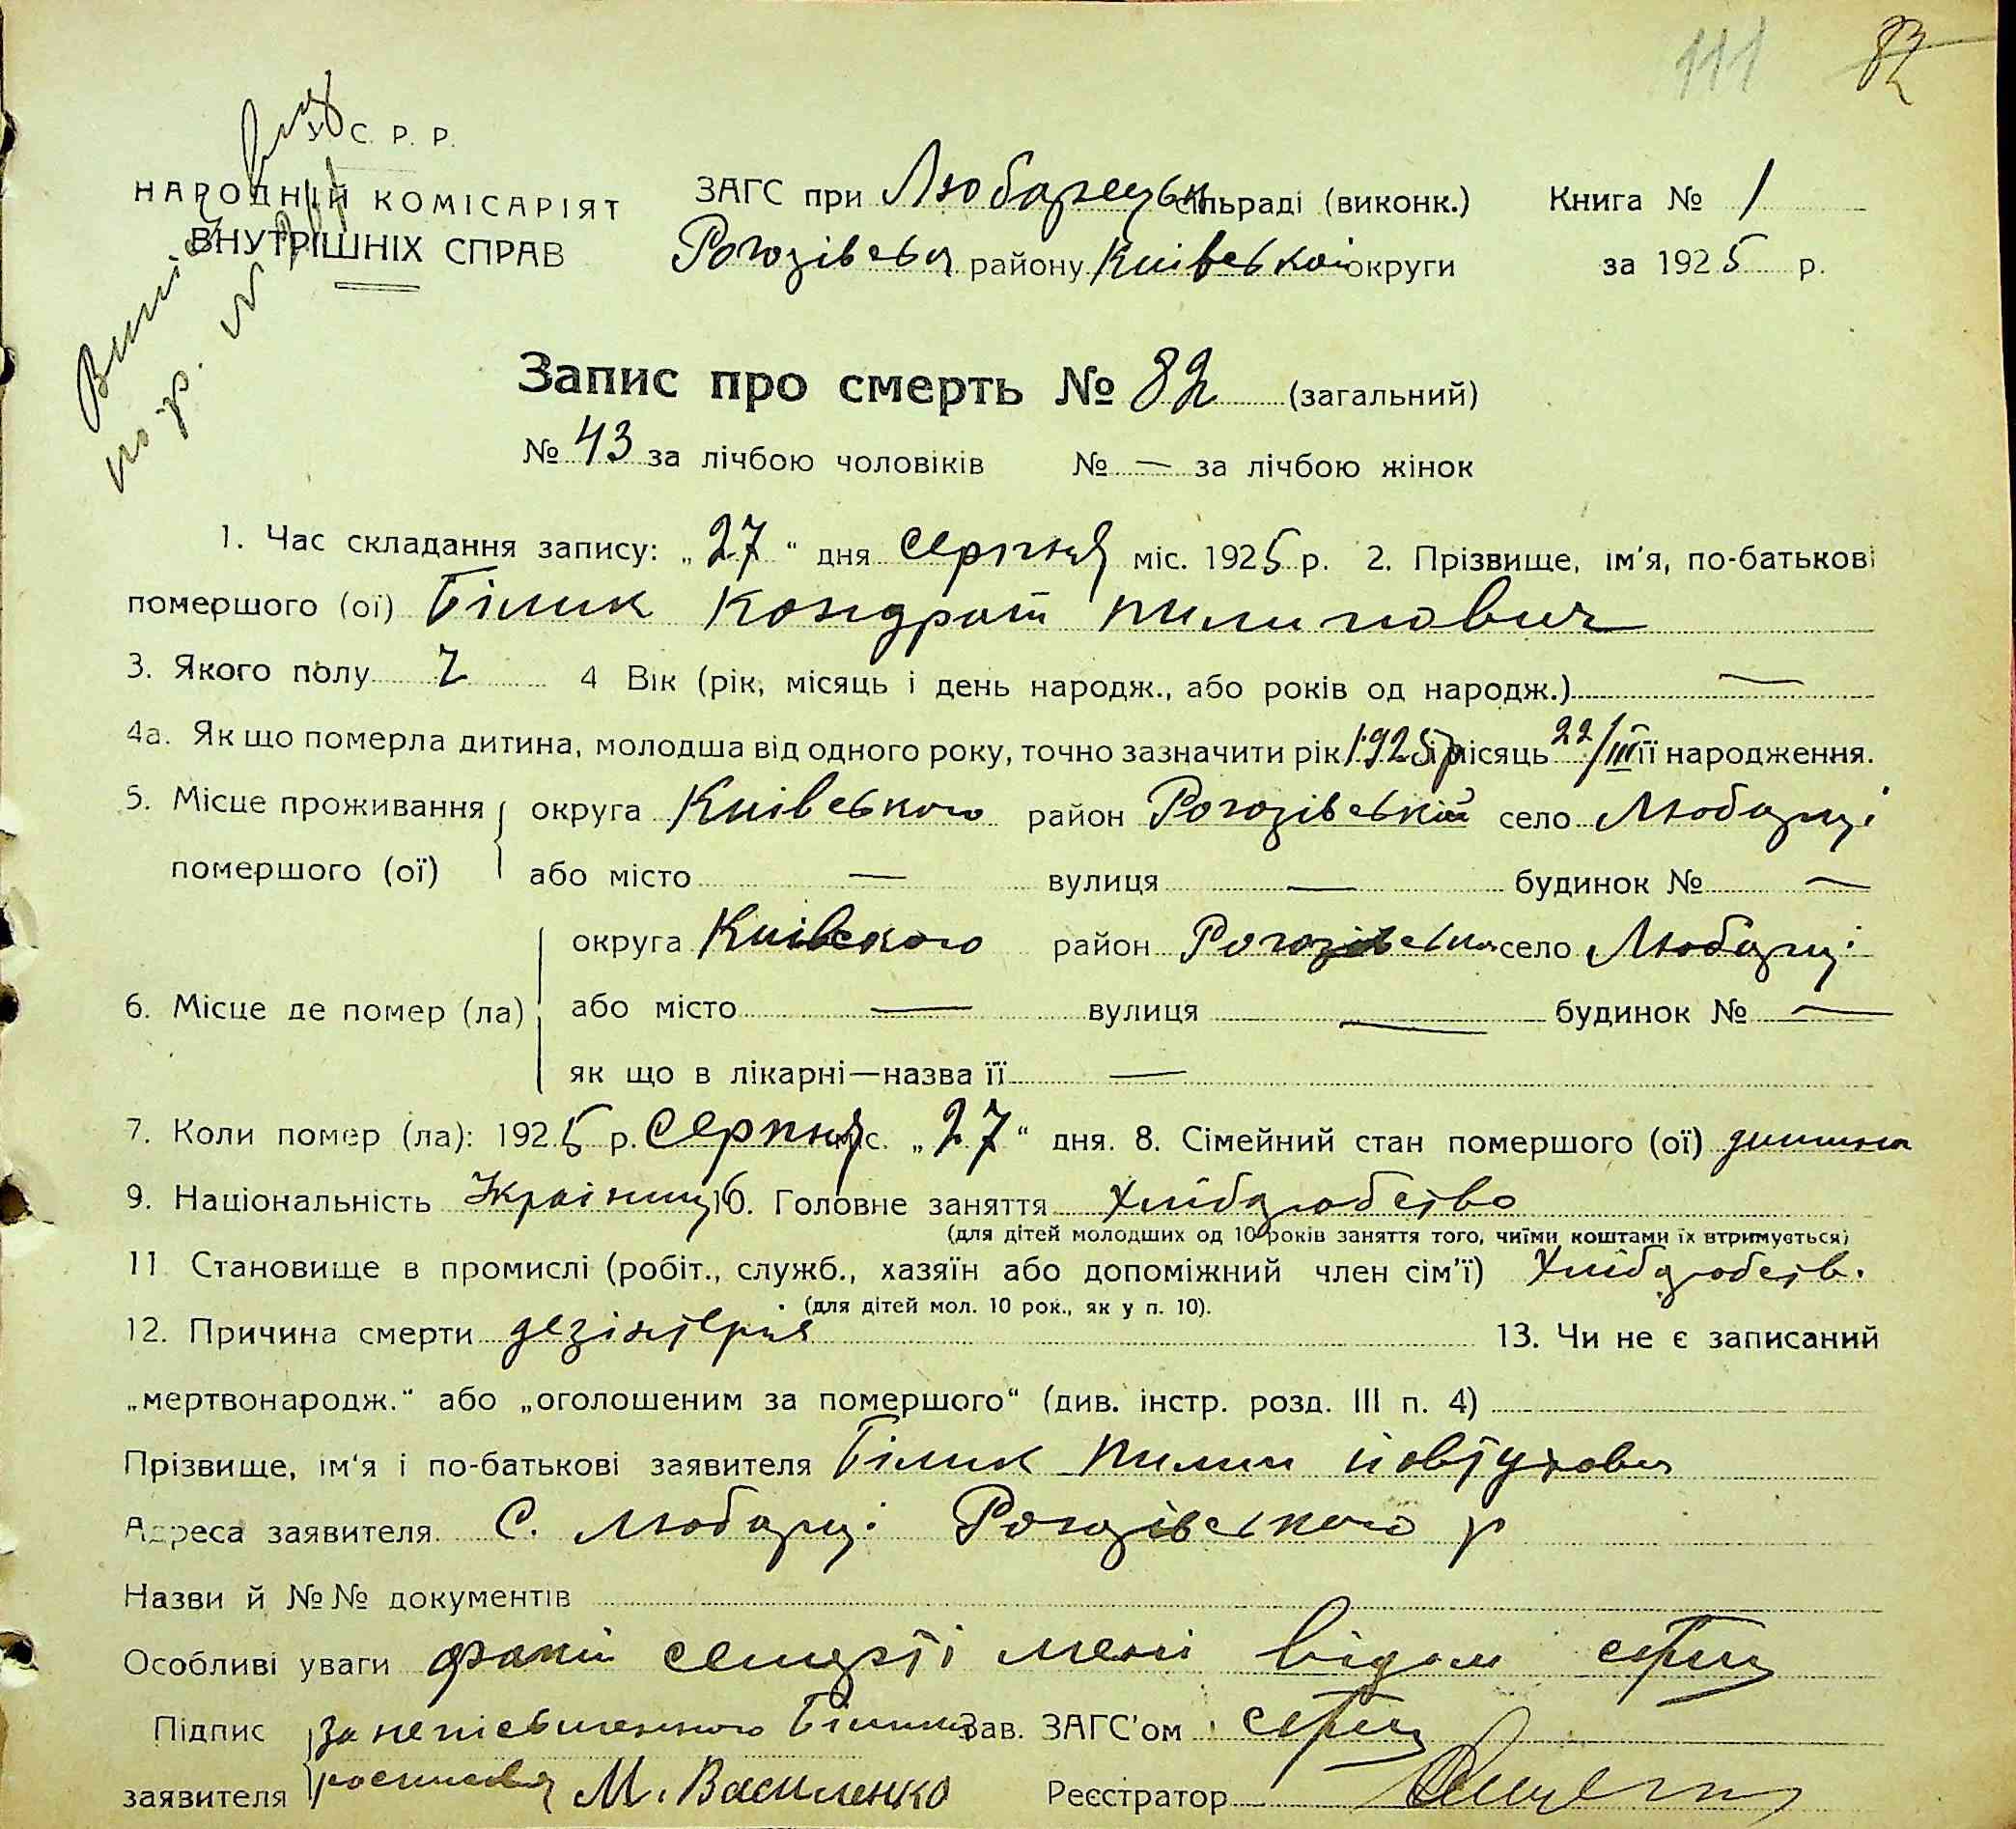 111 82
У. С. Р. Р.
НАРОДНІЙ КОМІСАРІЯТ
ВНУТРІШНІХ СПРАВ
ЗАГС при Любарецьк сільраді (виконк.) Книга № 1
Рогозівськ району Київської округи за 1925 р.
Запис про смерть № 82 (загальний)
№ 43 за лічбою чоловіків № — за лічбою жінок
1. Час складання запису: „27“ дня серпня міс. 1925 р. 2. Прізвище, ім'я, по-батькові
помершого (ої) Білик Кондрат Пилипович
3. Якого полу ч 4 Вік (рік, місяць і день народж., або років од народж.) —
4а. Як що померла дитина, молодша від одного року, точно зазначити рік 1925 р і місяць 22/III її народження.
5. Місце проживання округа Київського район Рогозівській село Любарці
помершого (ої) або місто — вулиця — будинок № —
округа Київского район Рогозівськ село Любарці
6. Місце де помер (ла) або місто — вулиця — будинок № —
як що в лікарні—назва її —
7. Коли помер (ла): 1925 р. Серпня міс. „27“ дня. 8. Сімейний стан помершого (ої) дитина
9. Національність Україниц 10. Головне заняття Хлібаробство
(для дітей молодших од 10 років заняття того, чиїми коштами їх втримується)
11 Становище в промислі (робіт., служб., хазяїн або допоміжний член сім'ї) Хлібаробств.
(для дітей мол. 10 рок., як у п. 10).
12. Причина смерти дезінтерия 13. Чи не є записаний
„мертвонародж.“ або „оголошеним за помершого“ (див. інстр. розд. III п. 4)
Прізвище, ім'я і по-батькові заявителя Білик Пилип Йовтухович
Адреса заявителя С. Любарці Рогозівського р
Назви й №№ документів
Особливі уваги факт смерті мені відом
Підпис за неписьменного Білика Зав. ЗАГС'ом
заявителя росписався М. Василенко Реєстратор